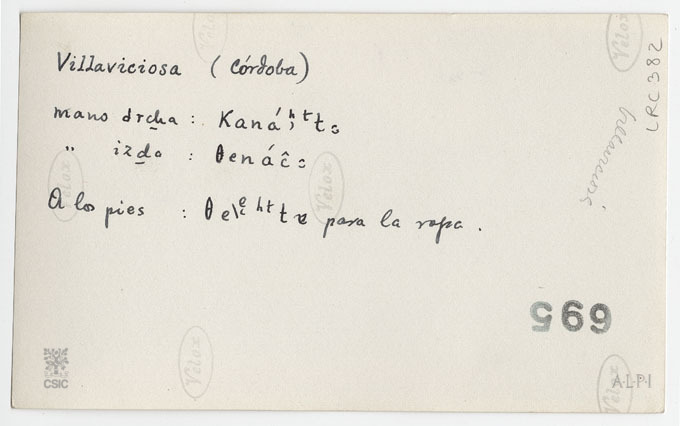 Villaviciosa (Córdoba)
mano drcha : Kanáʰᵗtɔ
" izda : θenáĉɔ
A los pies : para la ropa.
695
LRC 382
Velox
Velox
Velox
Velox
Velox
Velox
CSIC
ALPI